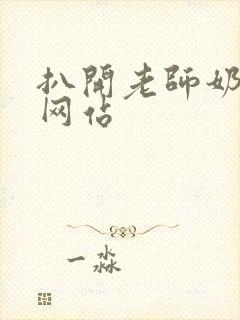 扒開老師奶
网佔
一淼